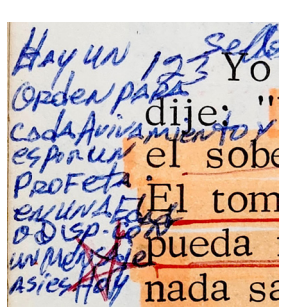 Hay un 1 2 3 Sello
Orden para
cada Avivamiento y
es por un
Profeta.
en una Edad
o Disp. con
un Mensaje
Asi es Hoy
Yo
dije: "
el sobe
El tom
pueda
nada sa